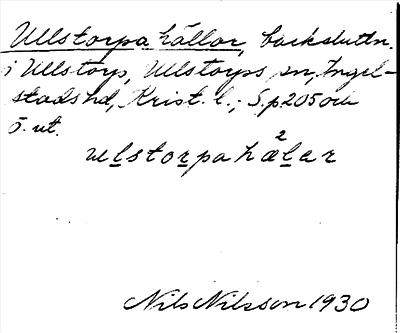 Ullstorpa hällor, backsluttn.
i Ullstorp, Ullstorps sn, Ingel-
stads hd, Krist. l.; S.p205 ou
ö. ut.
ulstorpa hæ²lar
Nils Nilsson 1930